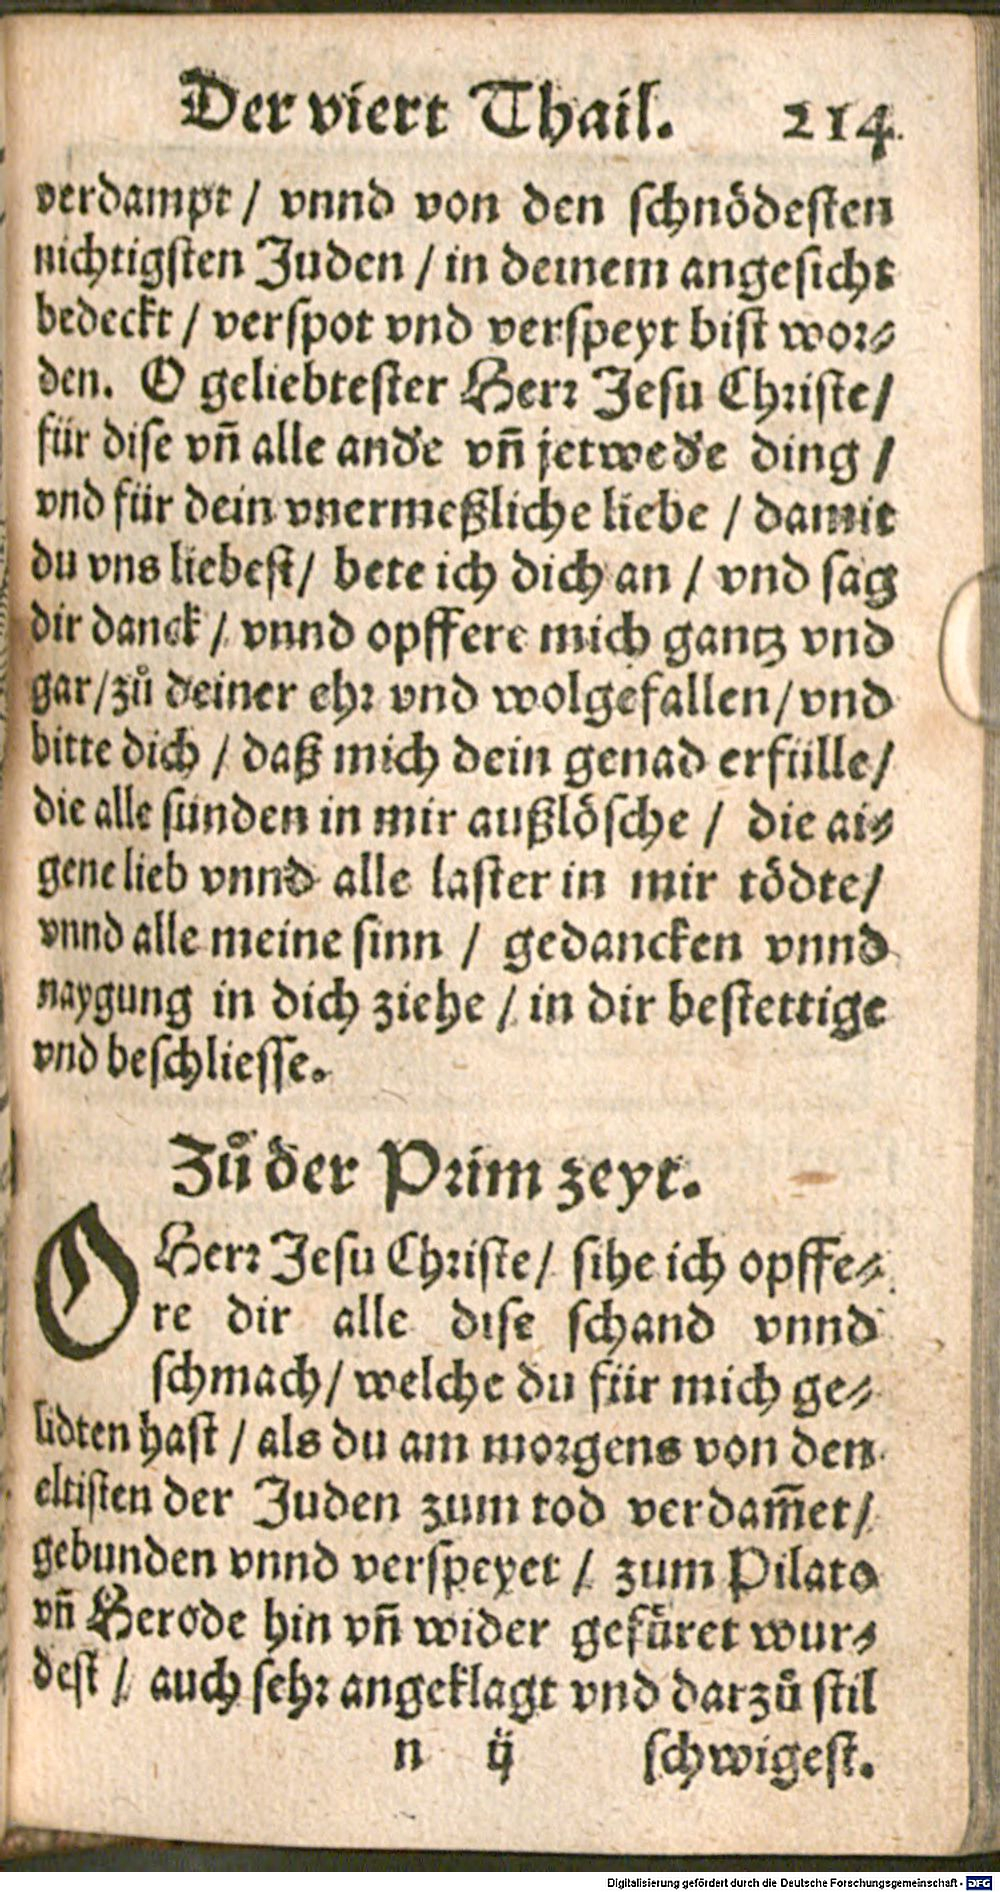 Der viert Thail. 214.
verdampt / vnnd von den schnödesten
nichtigsten Juden / in deinem angesicht
bedeckt / verspot vnd verspeyt bist wor⸗
den. O geliebtester Herr Jesu Christe/
für dise vñ alle andʼe vñ jetwedʼe ding /
vnd für dein vnermeßliche liebe / damit
du vns liebest/ bete ich dich an / vnd sag
dir danck / vnnd opffere mich gantz vnd
gar/zů deiner ehr vnd wolgefallen/vnd
bitte dich / daß mich dein genad erfülle/
die alle sünden in mir außlösche / die ai⸗
gene lieb vnnd alle laster in mir tödte/
vnnd alle meine sinn / gedancken vnnd
naygung in dich ziehe / in dir bestettige
vnd beschliesse.
Zů der Prim zeyt.
O Herr Jesu Christe/ sihe ich opffe⸗
re dir alle dise schand vnnd
schmach/ welche du für mich ge⸗
lidten hast / als du am morgens von den
eltisten der Juden zum tod verdam̄et/
gebunden vnnd verspeyet / zum Pilato
vñ Herode hin vñ wider gefüret wur⸗
dest / auch sehr angeklagt vnd darzů stil
n ij schwigest.
Digitalisierung gefördert durch die Deutsche Forschungsgemeinschaft - DFG